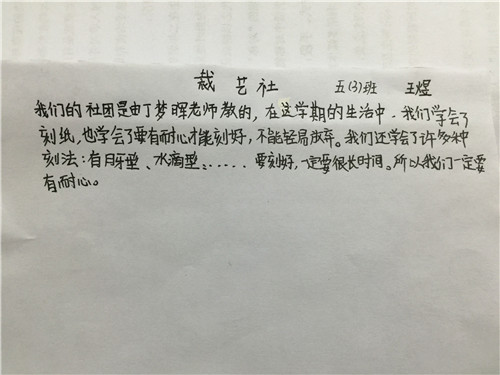 裁艺社 五(3)班 王煜
我们的社团是由丁梦晖老师教的，在这学期的生活中，我们学会了
刻纸，也学会了要有耐心才能刻好，不能轻易放弃。我们还学会了许多种
刻法：有月牙型、水滴型、……要刻好，一定要很长时间。所以我们一定要
有耐心。